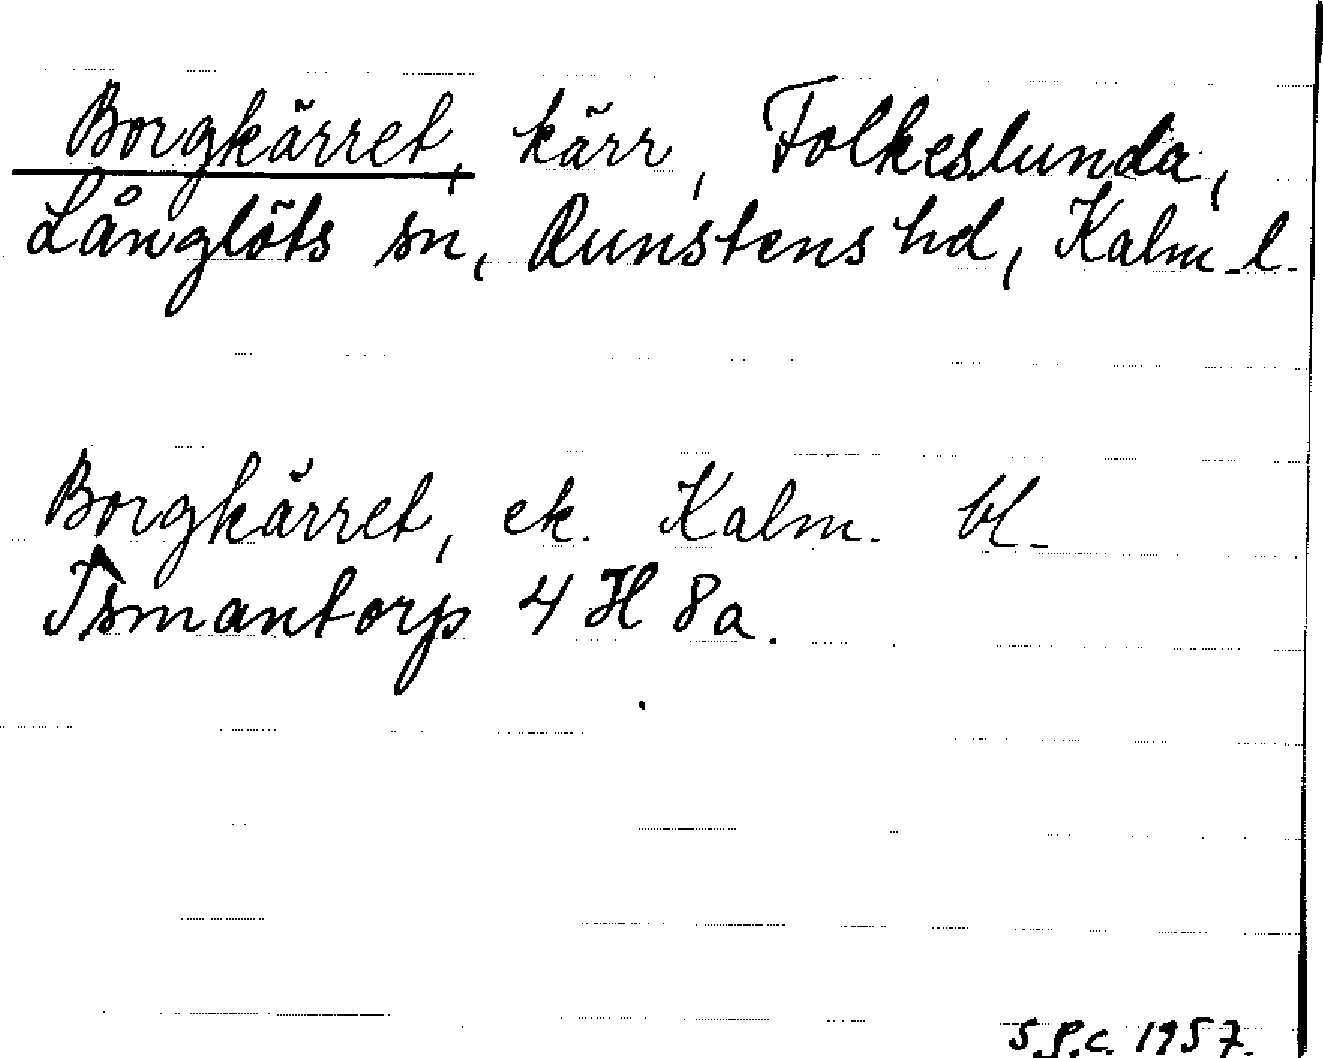 Borgkärret, kärr, Folkeslunda,
Långlöts sn, Runstens hd, Kalm. l.
Borgkärret, ek. Kalm. bl.
Ismantorp 4 H 8a.
S.P.C. 1957.